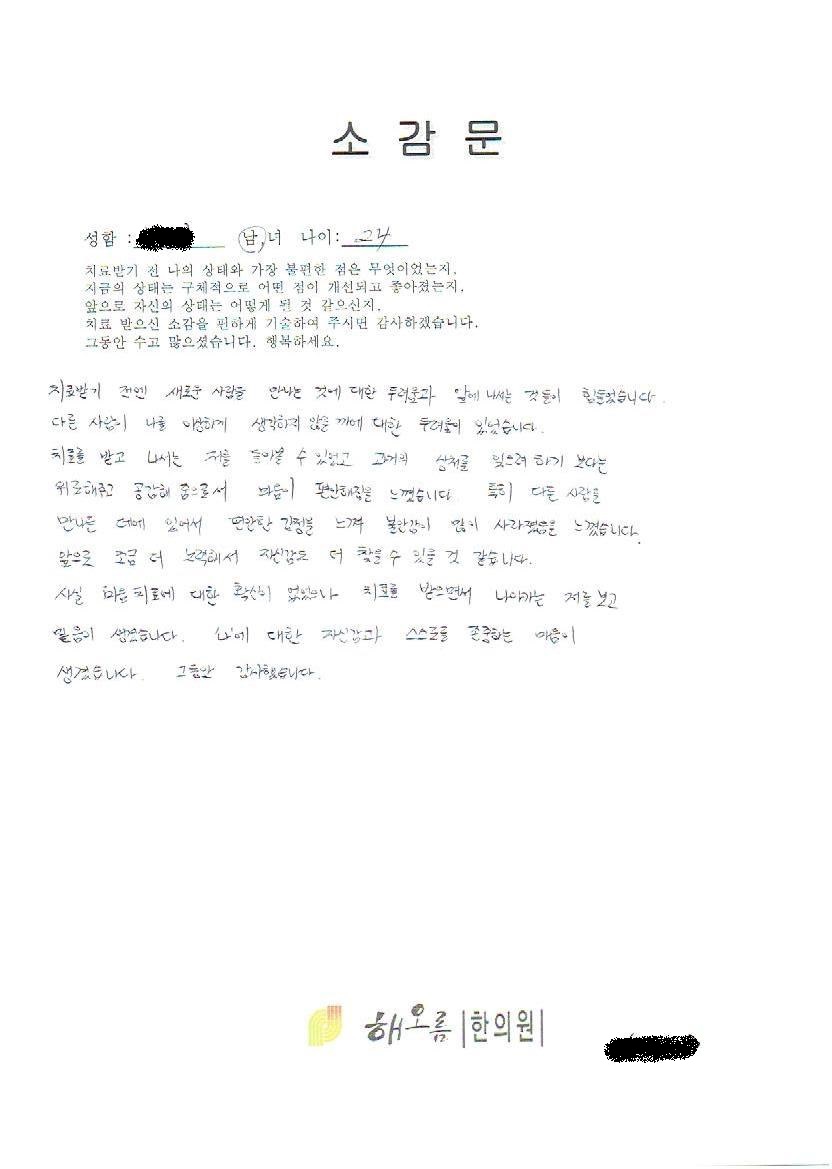 소 감 문
성함 : 남,녀 나이: 24
치료받기 전 나의 상태와 가장 불편한 점은 무엇이었는지.
지금의 상태는 구체적으로 어떤 점이 개선되고 좋아졌는지.
앞으로 자신의 상태는 어떻게 될 것 같으신지.
치료 받으신 소감을 편하게 기술하여 주시면 감사하겠습니다.
그동안 수고 많으셨습니다. 행복하세요.
치료받기 전엔 새로운 사람을 만나는 것에 대한 두려움과 앞에 나서는 것들이 힘들었습니다.
다른 사람이 나를 이상하게 생각하지 않을까에 대한 두려움이 있었습니다.
치료를 받고 나서는 저를 돌아볼 수 있었고 과거의 상처를 잊으려 하기 보다는
위로해주고 공감해 줌으로서 마음이 편안해짐을 느꼈습니다 특히 다른 사람을
만나는 데에 있어서 편안한 감정을 느껴 불안감이 많이 사라졌음을 느꼈습니다.
앞으로 조금 더 노력해서 자신감도 더 찾을 수 있을 것 같습니다.
사실 마음 치료에 대한 확신이 없었으나 치료를 받으면서 나아가는 저를 보고
믿음이 생겼습니다. '나'에 대한 자신감과 스스로를 존중하는 마음이
생겼습니다. 그동안 감사했습니다.
해오름 한의원